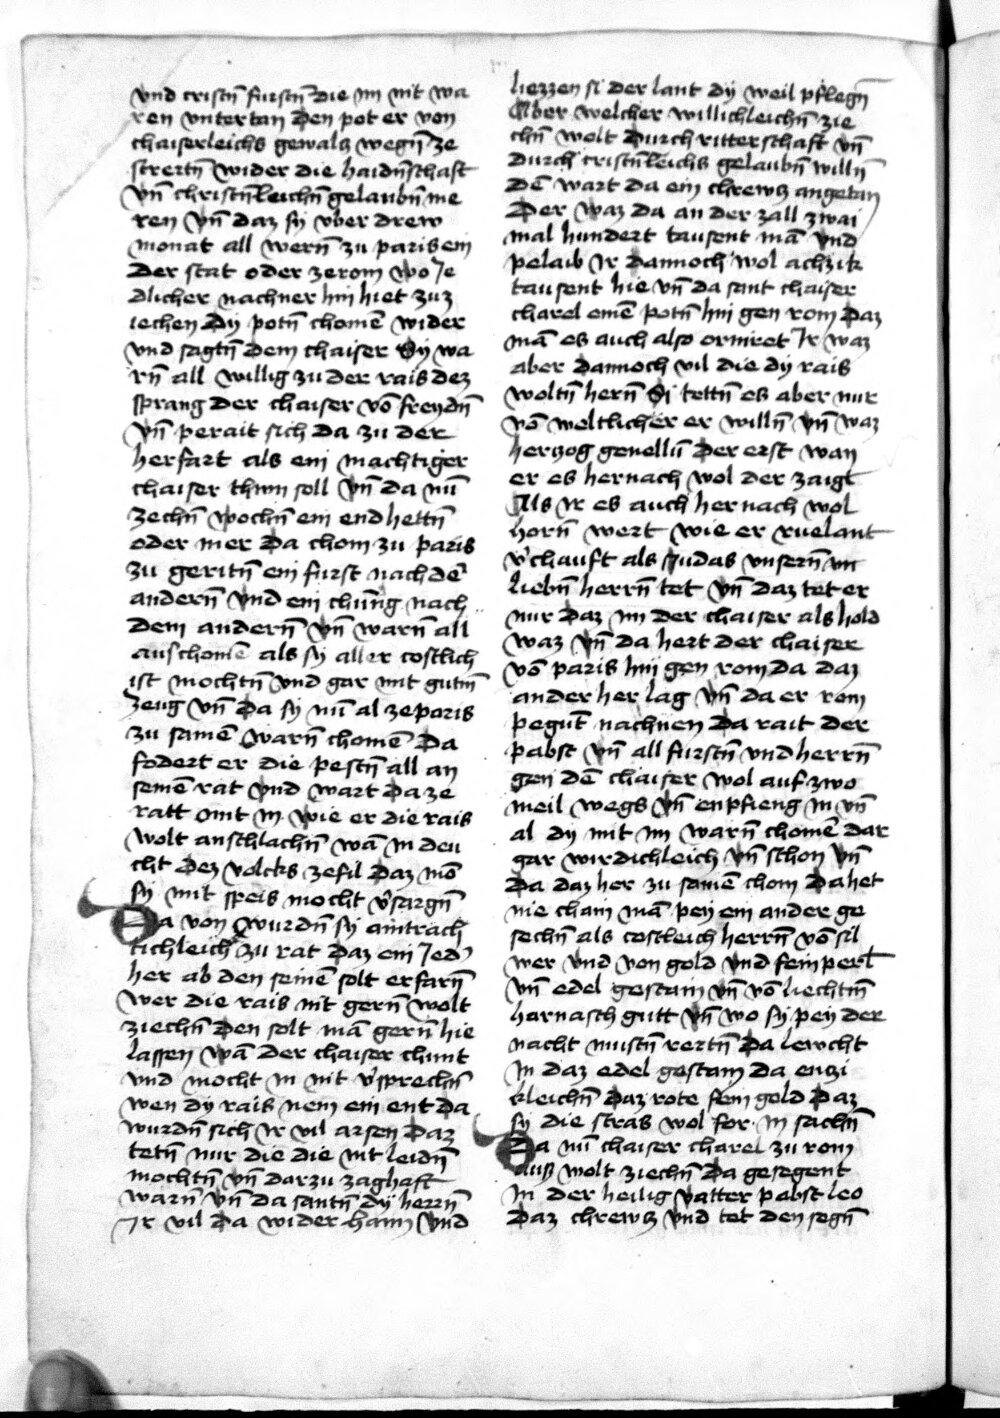 vnd cristn̄ furstn̄ die im nit wa
ren vntertan den pot er von
chaiserleichs gewalz wegn̄ ze
streitn̄ wider die haidn̄schaft
vn̄ christn̄leichn̄ gelaubn̄ me
ren vn̄ daz sy vber drew
monat all wern̄ zu paris ein
der stat oder ze rom wo Je
dlicher nachner hin hiet zuz
iechen dy potn̄ chomē wider
vnd sagtn̄ dem chaiser Sy wa
rn̄ all willig zu der rais dez
sprang der chaiser vō freydn̄
vn̄ perait sich da zu der
herfart als ein machtiger
chaiser thun soll vn̄ da nū
zechn̄ wochn̄ ein end hettn̄
oder mer da chom zu paris
zu geritn̄ ein furst nach dē
andern̄ vnd ein chūng nach
dem andern̄ vn̄ warn̄ all
aus chomē als sy aller costlich
ist mochtn̄ vnd gar mit gutm̄
zeug vn̄ da sy nū al ze paris
zu samē warn̄ chomē da
fodert er die pestn̄ all an
seinē rat vnd wart da ze
ratt mit in wie er die rais
wolt anschlachn̄ wā in deu
cht dez volcks ze fil daz mō
sy mit speis mocht v̄sargn̄
Da von wurdn̄ sy aintrach
tichleich zu rat daz ein Jed
her ab den seinē solt erfarn̄
wer die rais nit gern̄ wolt
ziechn̄ den solt mā gern̄ hie
lassen wā der chaiser chunt
vnd mocht in nit v̄sprechn̄
wen dy rais nem ein ent da
wurdn̄ sich ir vil arsen daz
tetn̄ nur die die nit leidn̄
mochtn̄ vn̄ darzu zaghaft
warn̄ vn̄ da santn̄ dy herrn̄
Jr vil da wider haim vnd
liezzen si der lant dy weil pflegn̄
Aber welcher willichleichn̄ zie
chn̄ wolt durch ritterschaft vn̄
durch cristn̄leichs gelaubn̄ willn̄
dē wart da ein chrewz angetan
Der waz da an der zall zwai
mal hundert tausent mā vnd
pelaib Jr dannoch wol achzik
tausent hie vn̄ da sant chaiser
charel einē potn̄ hin gen rom daz
mā es auch also ormiret Jr waz
aber dannoch vil die dy rais
woltn̄ hern̄ Si tettn̄ es aber nur
vō weltlicher er willn̄ vn̄ waz
herzog genellū der erst wan
er es hernach wol der zaigt
Als ir es auch hernach wol
horn̄ wert wie er ruelant
v̄chauft als Judas vnsern̄ vn
liebn̄ herrn̄ tet vn̄ daz tet er
nur daz im der chaiser als hold
waz vn̄ da hert der chaiser
vō paris hin gen rom da daz
ander her lag vn̄ da er rom
pegūt nachnen da rait der
pabst vn̄ all furstn̄ vnd herrn̄
gen dē chaiser wol auf zwo
meil wegs vn̄ enpfieng in vn̄
al dy mit im warn̄ chomē dar
gar wirdichleich vn̄ schon vn̄
da daz her zu samē chom da het
nie chain mā pey ein ander ge
sechn̄ als costleich herrn̄ vō sil
wer vnd von gold vnd fein perl
vn̄ edel gestain vn̄ vō liechtm̄
harnasch gutt vn̄ wo sy pey der
nacht mustn̄ reitn̄ da lewcht
in daz edel gestain da enzi
kleichn̄ daz rote fein gold daz
sy die stras wol for in sachn̄
Da nū chaiser charel zu rom
auß wolt ziechn̄ da gesegent
in der heilig vatter pabst leo
daz chrewz vnd tet den segn̄